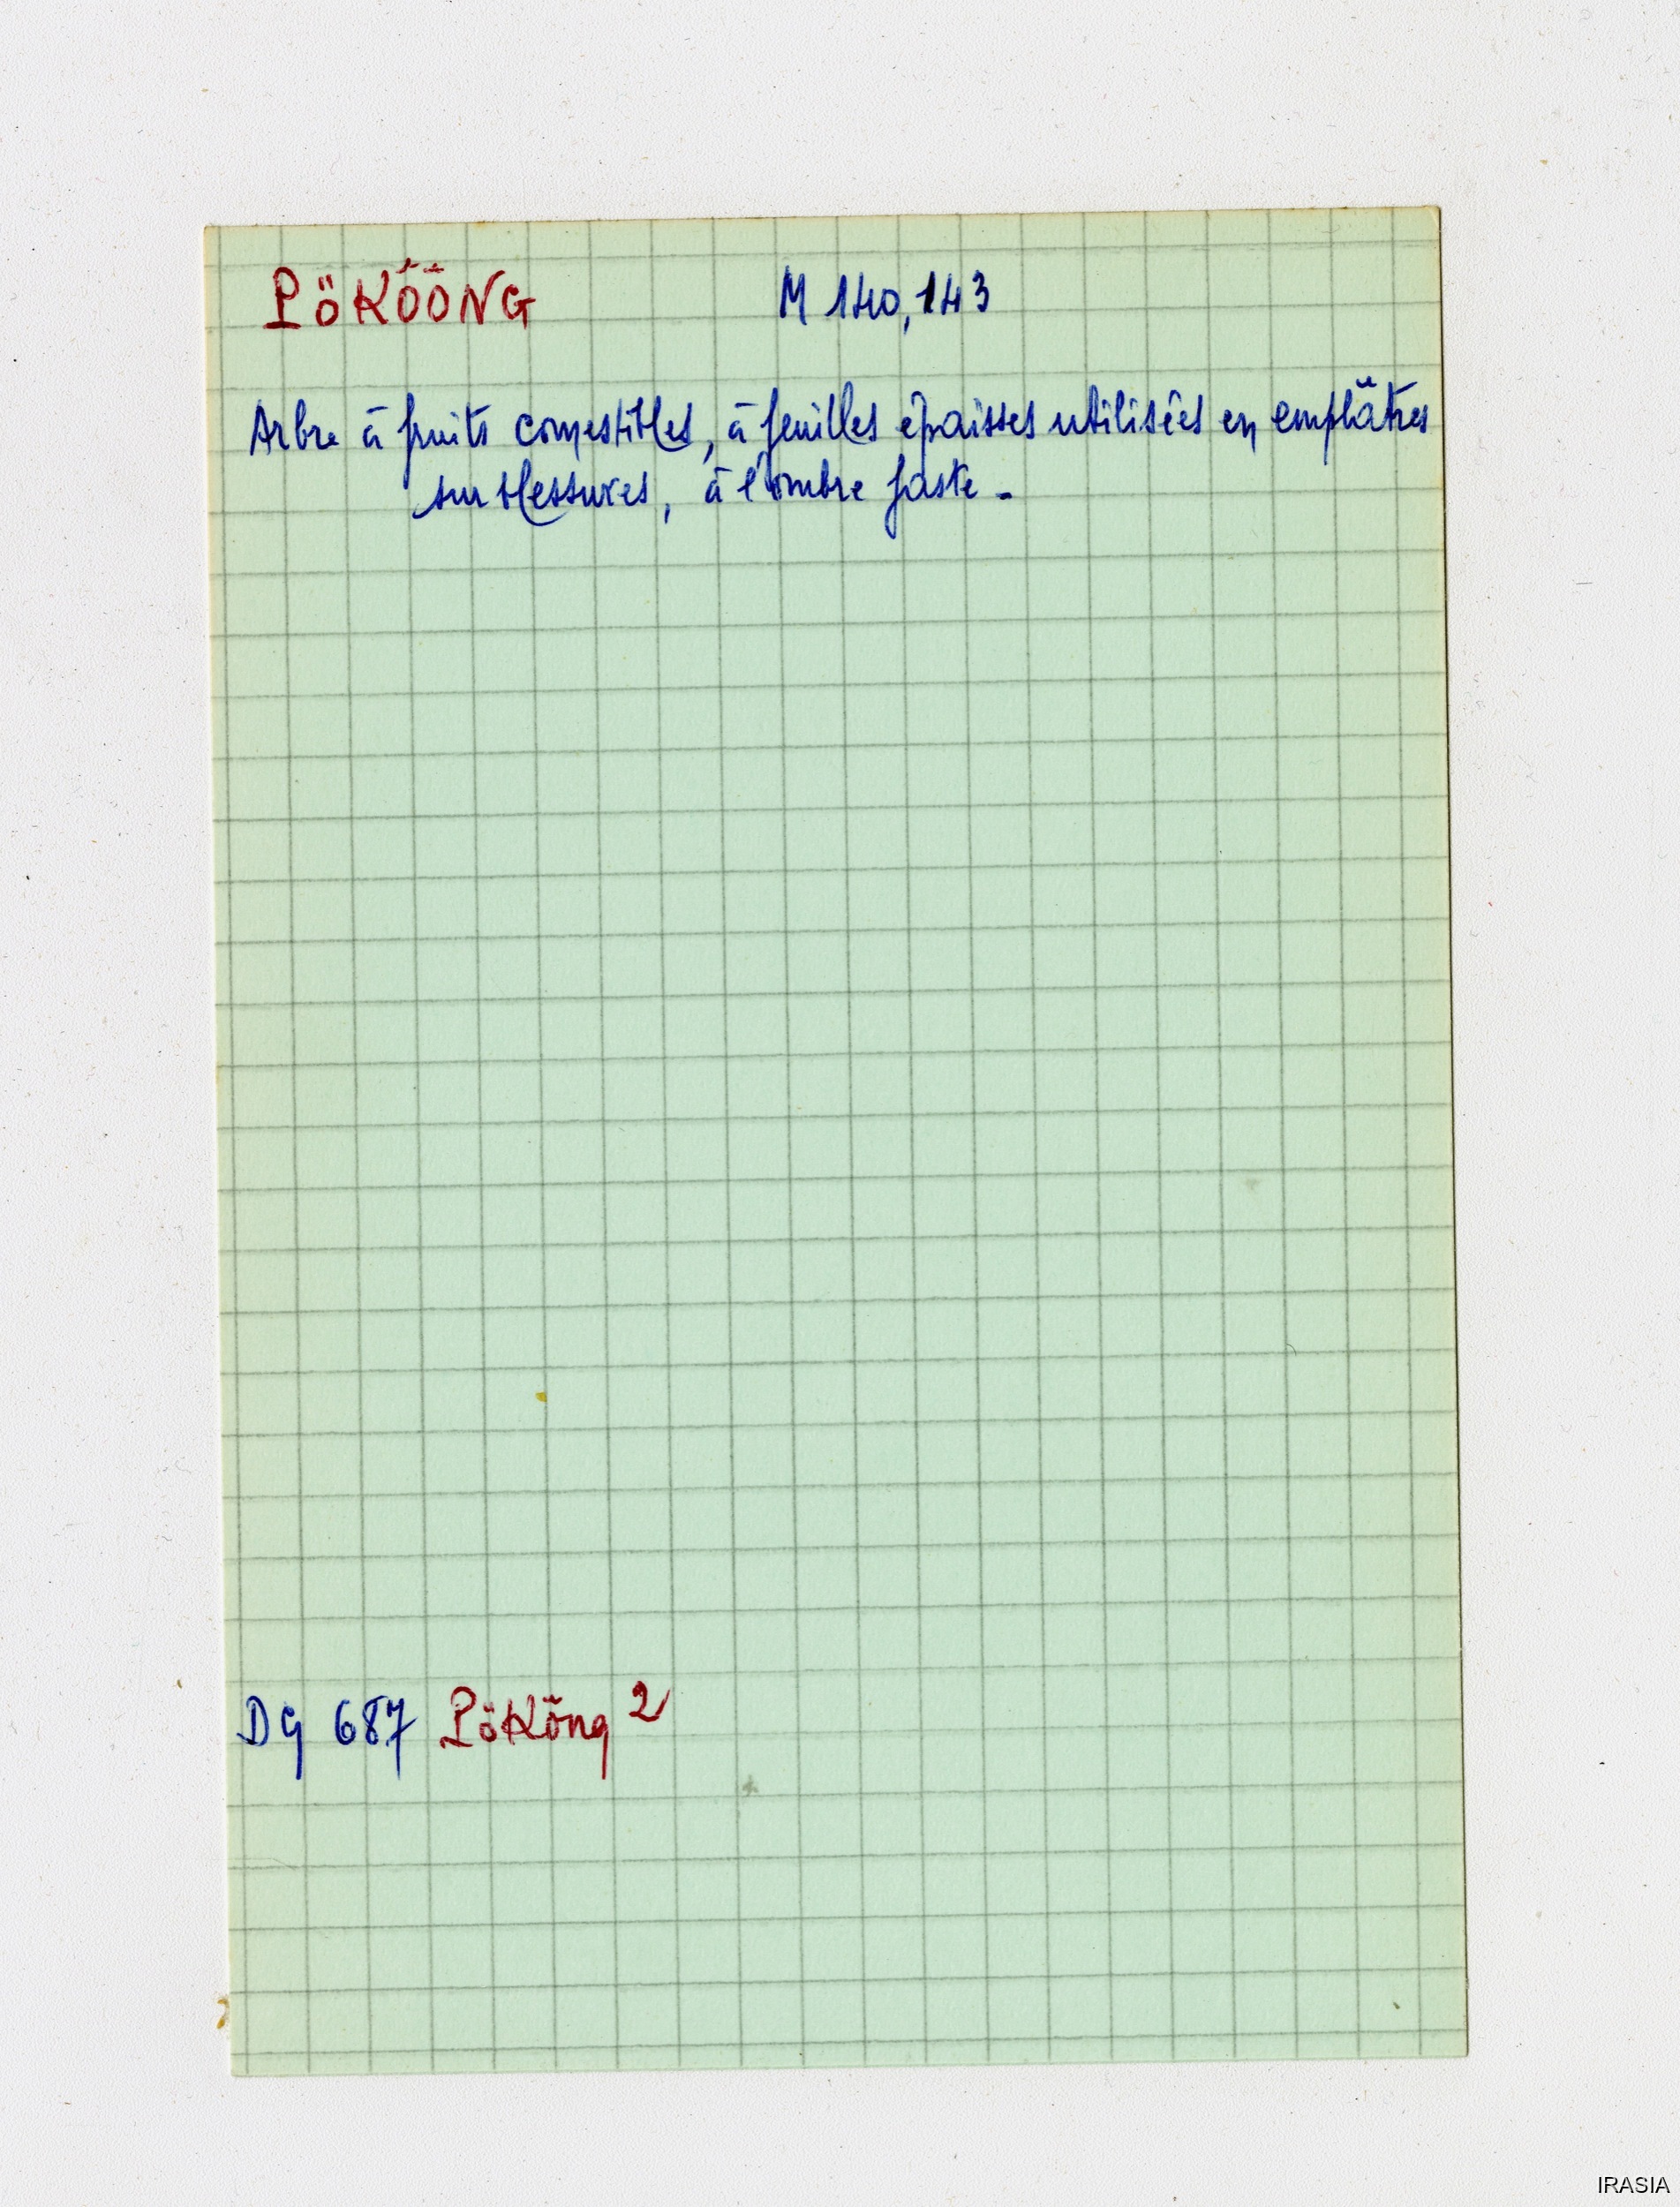 PÖKÖÖNG M 140, 143
Arbre à fruits comestibles, à feuilles épaisses utilisées en emplâtres
sur blessures, à l'ombre faste -
DG 687 Pököng 2
IRASIA